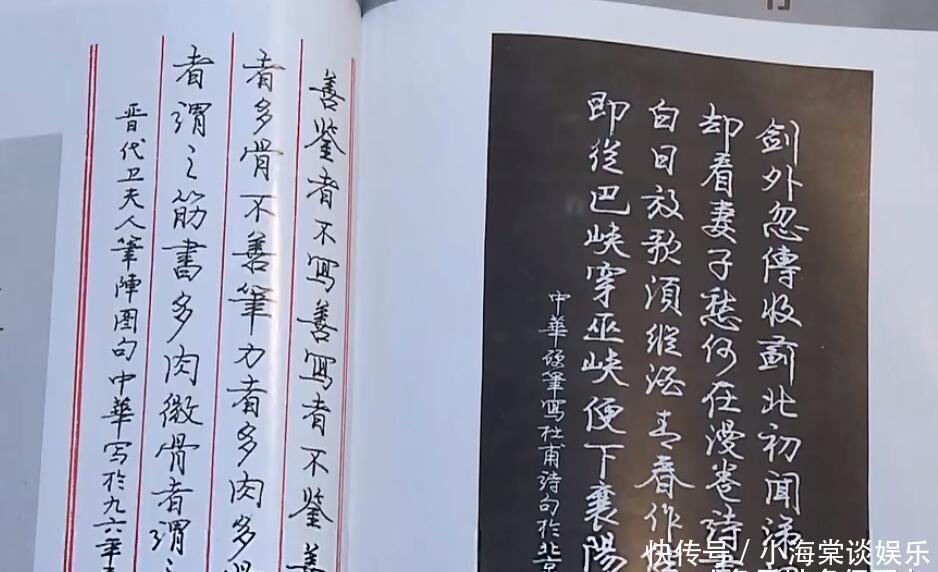 剑外忽傳收薊北初闻涕
却看妻子愁何在漫卷诗
白日放歌須縱酒青春作
即從巴峡穿巫峡便下襄陽
中華硬筆寫杜甫诗句於北京
善鉴者不写善写者不鉴善
者多骨不善筆力者多肉多
者谓之筋書多肉微骨者谓
晋代卫夫人筆陣图句中華写於九六年
快传号/小海棠谈娱乐